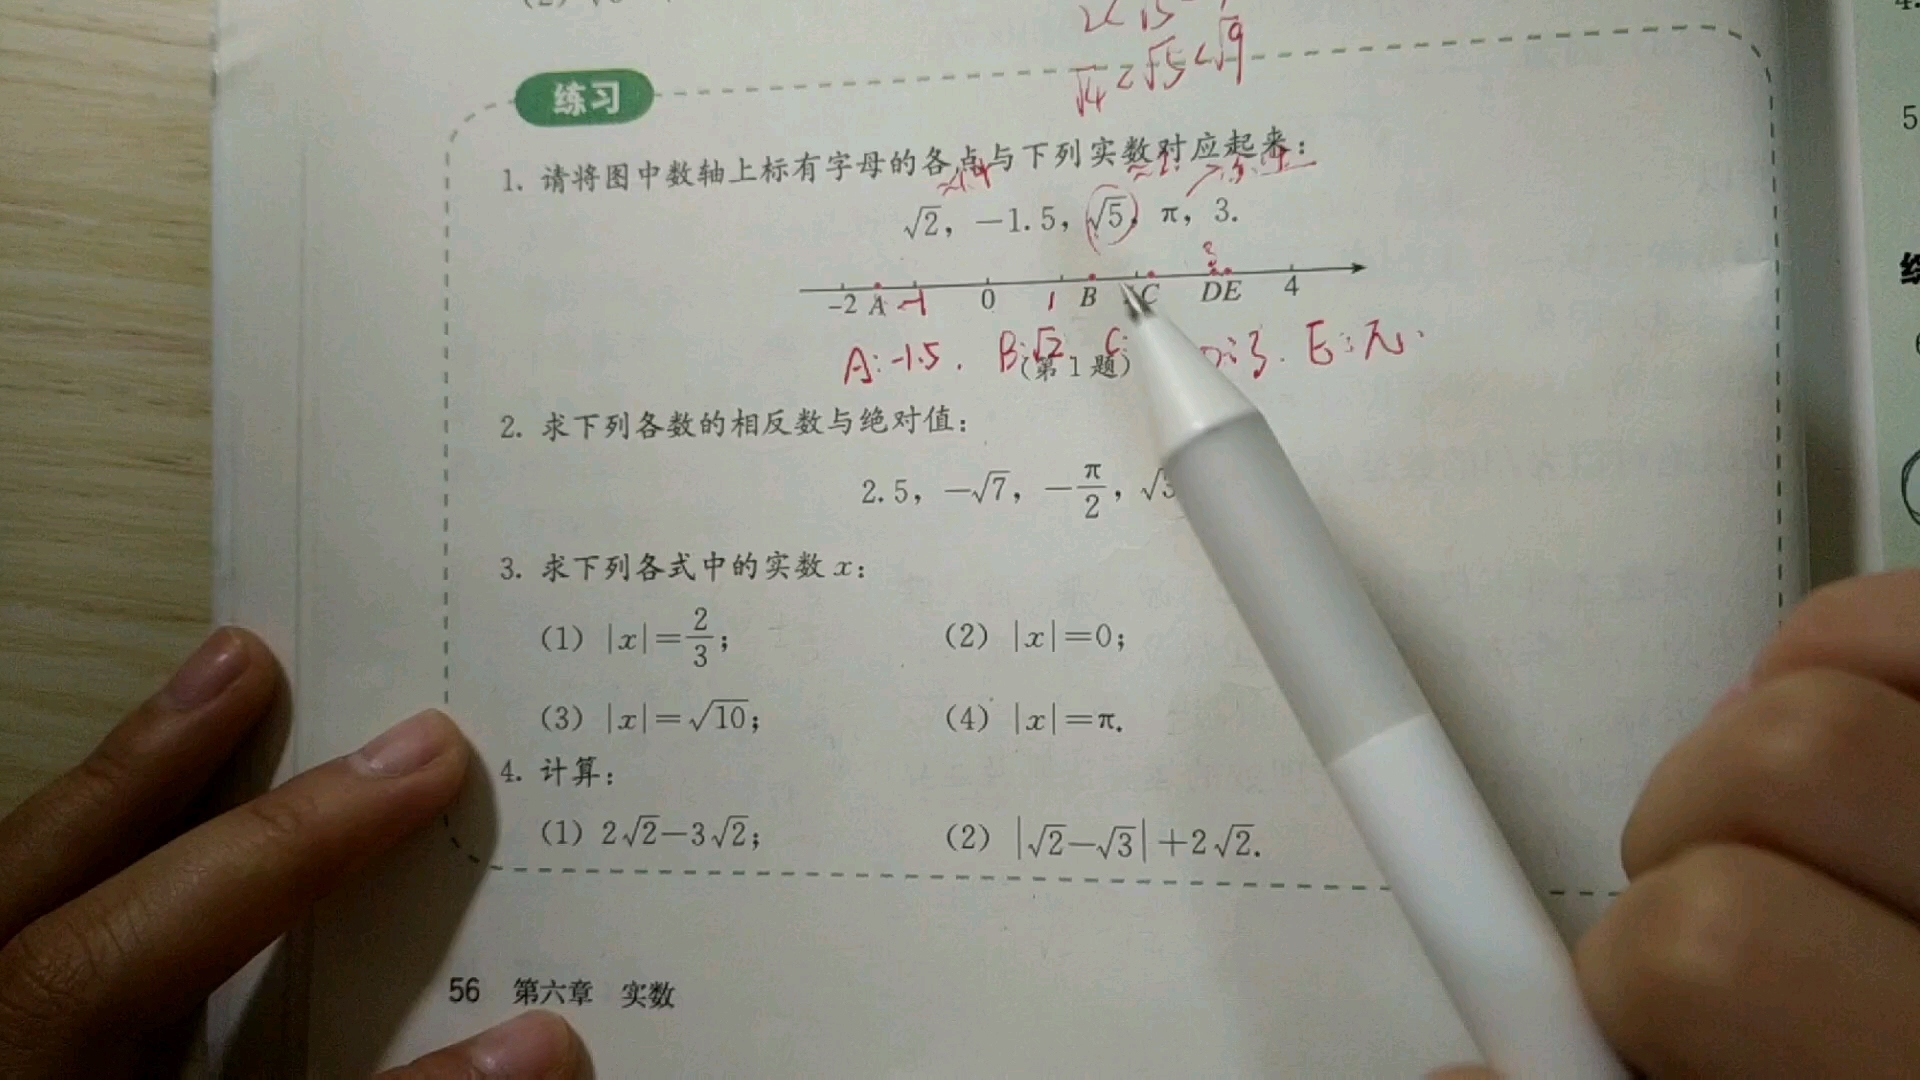 √4<√5<√9
练习
1. 请将图中数轴上标有字母的各点与下列实数对应起来:
√2, -1.5, √5, π, 3.
-2 A -1 0 1 B C DE 4
A: -1.5. B: √2 C: D: 3. E: π.
(第1题)
2. 求下列各数的相反数与绝对值:
2.5, -√7, -π/2, √3
3. 求下列各式中的实数x:
(1) |x|=2/3; (2) |x|=0;
(3) |x|=√10; (4) |x|=π.
4. 计算:
(1) 2√2-3√2; (2) |√2-√3|+2√2.
56 第六章 实数